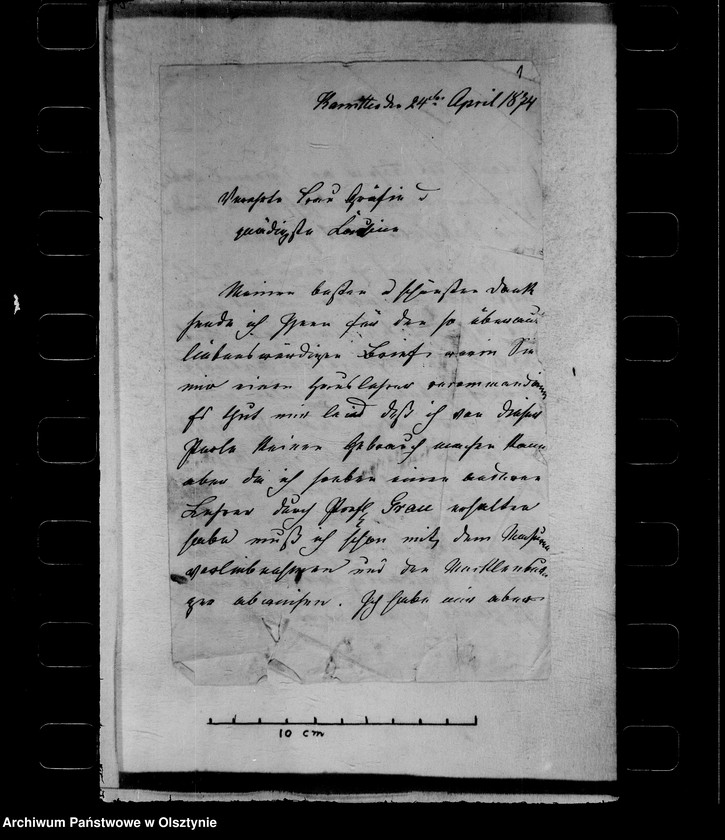 1
Karwitten den 24ten April 1874
Verehrte Frau Gräfin
gnädigste
Meinen besten & schönsten Dank
sende ich Ihnen für den so überaus
liebenswürdigen Brief, worin Sie
mir einen Hauslehrer recommandiren
Es thut mir leid daß ich von dieser
Perle keinen Gebrauch machen kann
aber da ich soeben einen anderen
Lehrer durch Prof. Grau erhalten
habe muß ich schon mit dem Masuren
vorliebnehmen und den Mecklenbur-
ger abweisen. Ich habe nur aber
10 cm
Archiwum Państwowe w Olsztynie